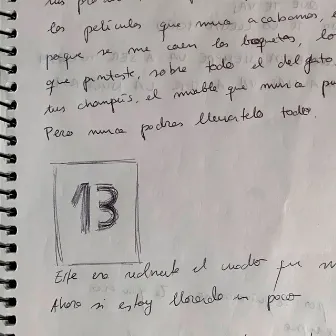 las películas que nunca acabamos, e
porque se me caen las baquetas, lo
que pintaste, sobre todo el del gato.
tus champús, el mueble que nunca pu
Pero nunca podrás llevártelo todo.
13
Este era realmente el cuadro que m
Ahora sí estoy llorando un poco